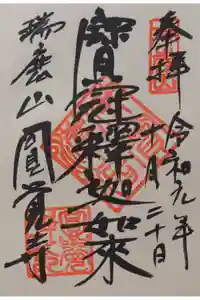 奉拜
令和元年
十月二十日
寶冠釋迦如來
瑞鹿山
圓覚寺